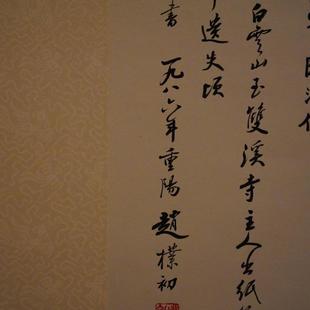 白雲山至雙溪寺主人出紙
遺失頃
書 一九八六年重陽 趙樸初